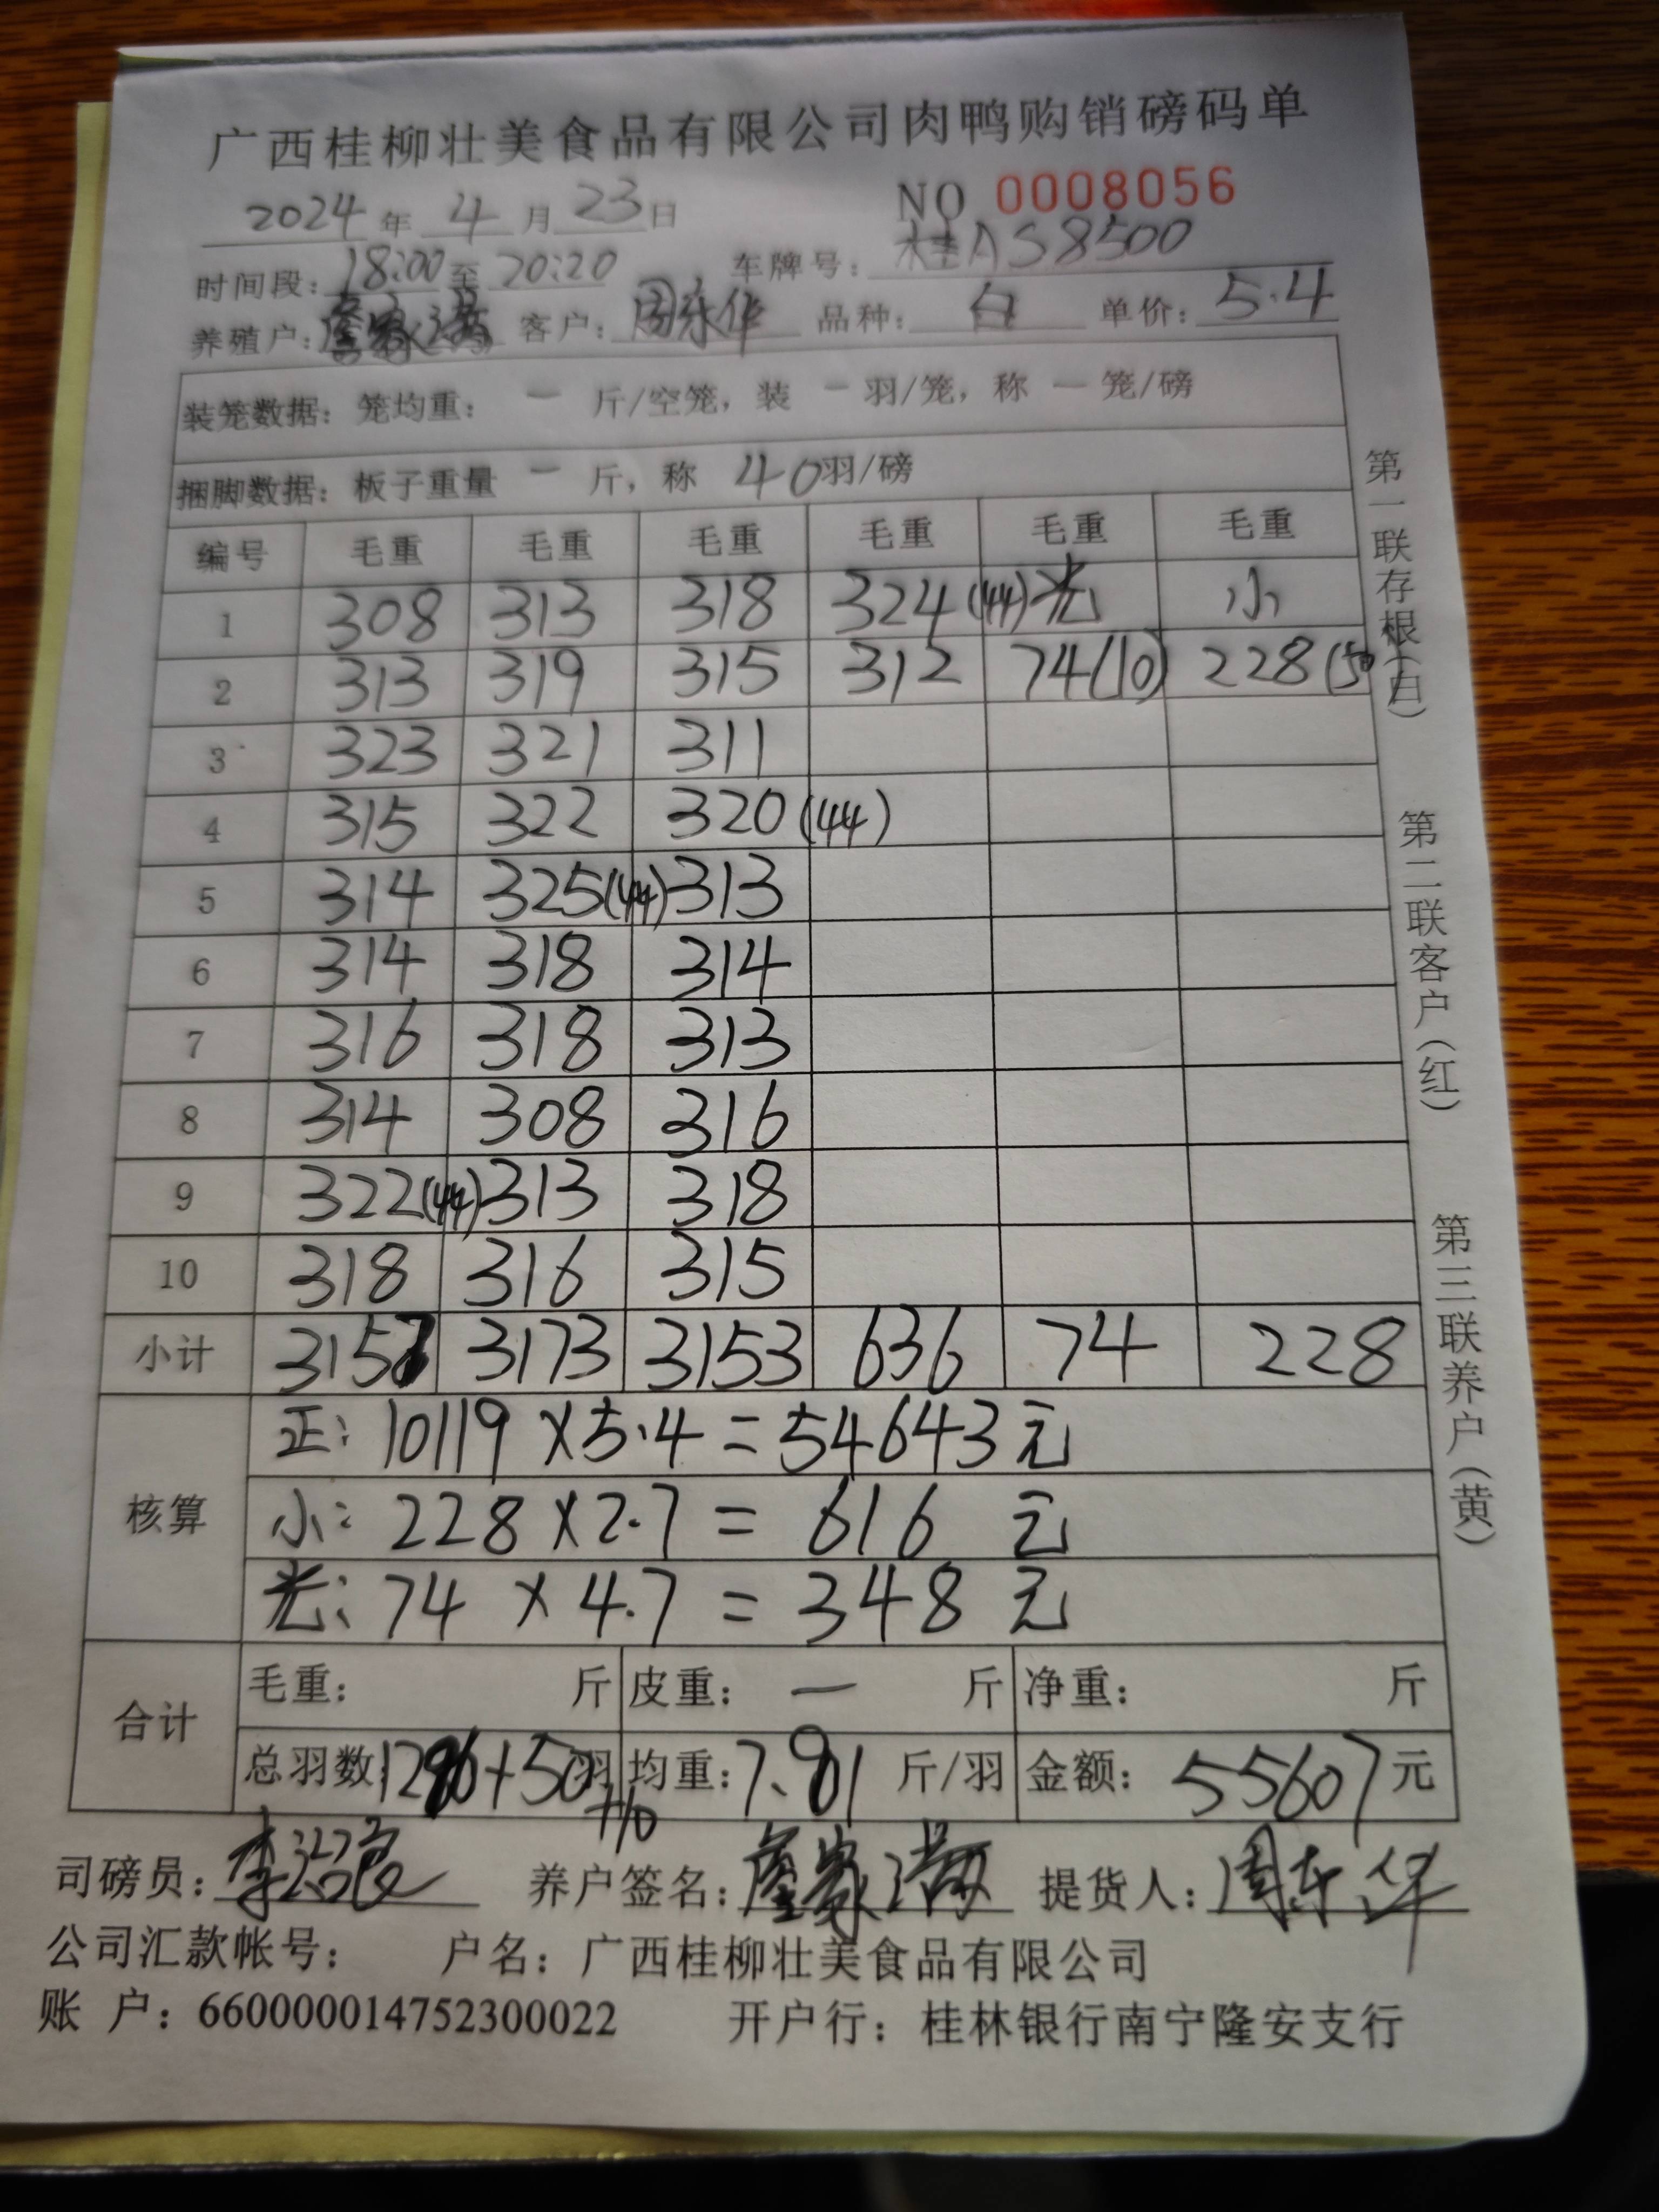 广西桂柳壮美食品有限公司肉鸭购销磅码单
2024 年 4 月 23 日 NO 0008056
时间段: 18:00 至 20:20 车牌号: 桂AS8500
养殖户: 客户: 周东华 品种: 白 单价: 5.4
装笼数据: 笼均重: 一 斤/空笼, 装 一 羽/笼, 称 一 笼/磅
捆脚数据: 板子重量 一 斤, 称 40羽/磅
编号 毛重 毛重 毛重 毛重 毛重 毛重
1 308 313 318 324(44) 光 小
2 313 319 315 312 74(10) 228(50
3 323 321 311
4 315 322 320(44)
5 314 325(44) 313
6 314 318 314
7 316 318 313
8 314 308 316
9 322(44) 313 318
10 318 316 315
小计 3157 3173 3153 636 74 228
核算
正: 10119 ×5.4 = 54643 元
小: 228 ×2.7 = 616 元
光: 74 × 4.7 = 348 元
合计
毛重: 斤 皮重: 一 斤 净重: 斤
总羽数: 1296+50羽 +10 均重: 7.81 斤/羽 金额: 55607 元
司磅员: 养户签名: 提货人: 周东华
公司汇款帐号: 户名: 广西桂柳壮美食品有限公司
账 户: 660000014752300022 开户行: 桂林银行南宁隆安支行
第一联存根(白)
第二联客户(红)
第三联养户(黄)